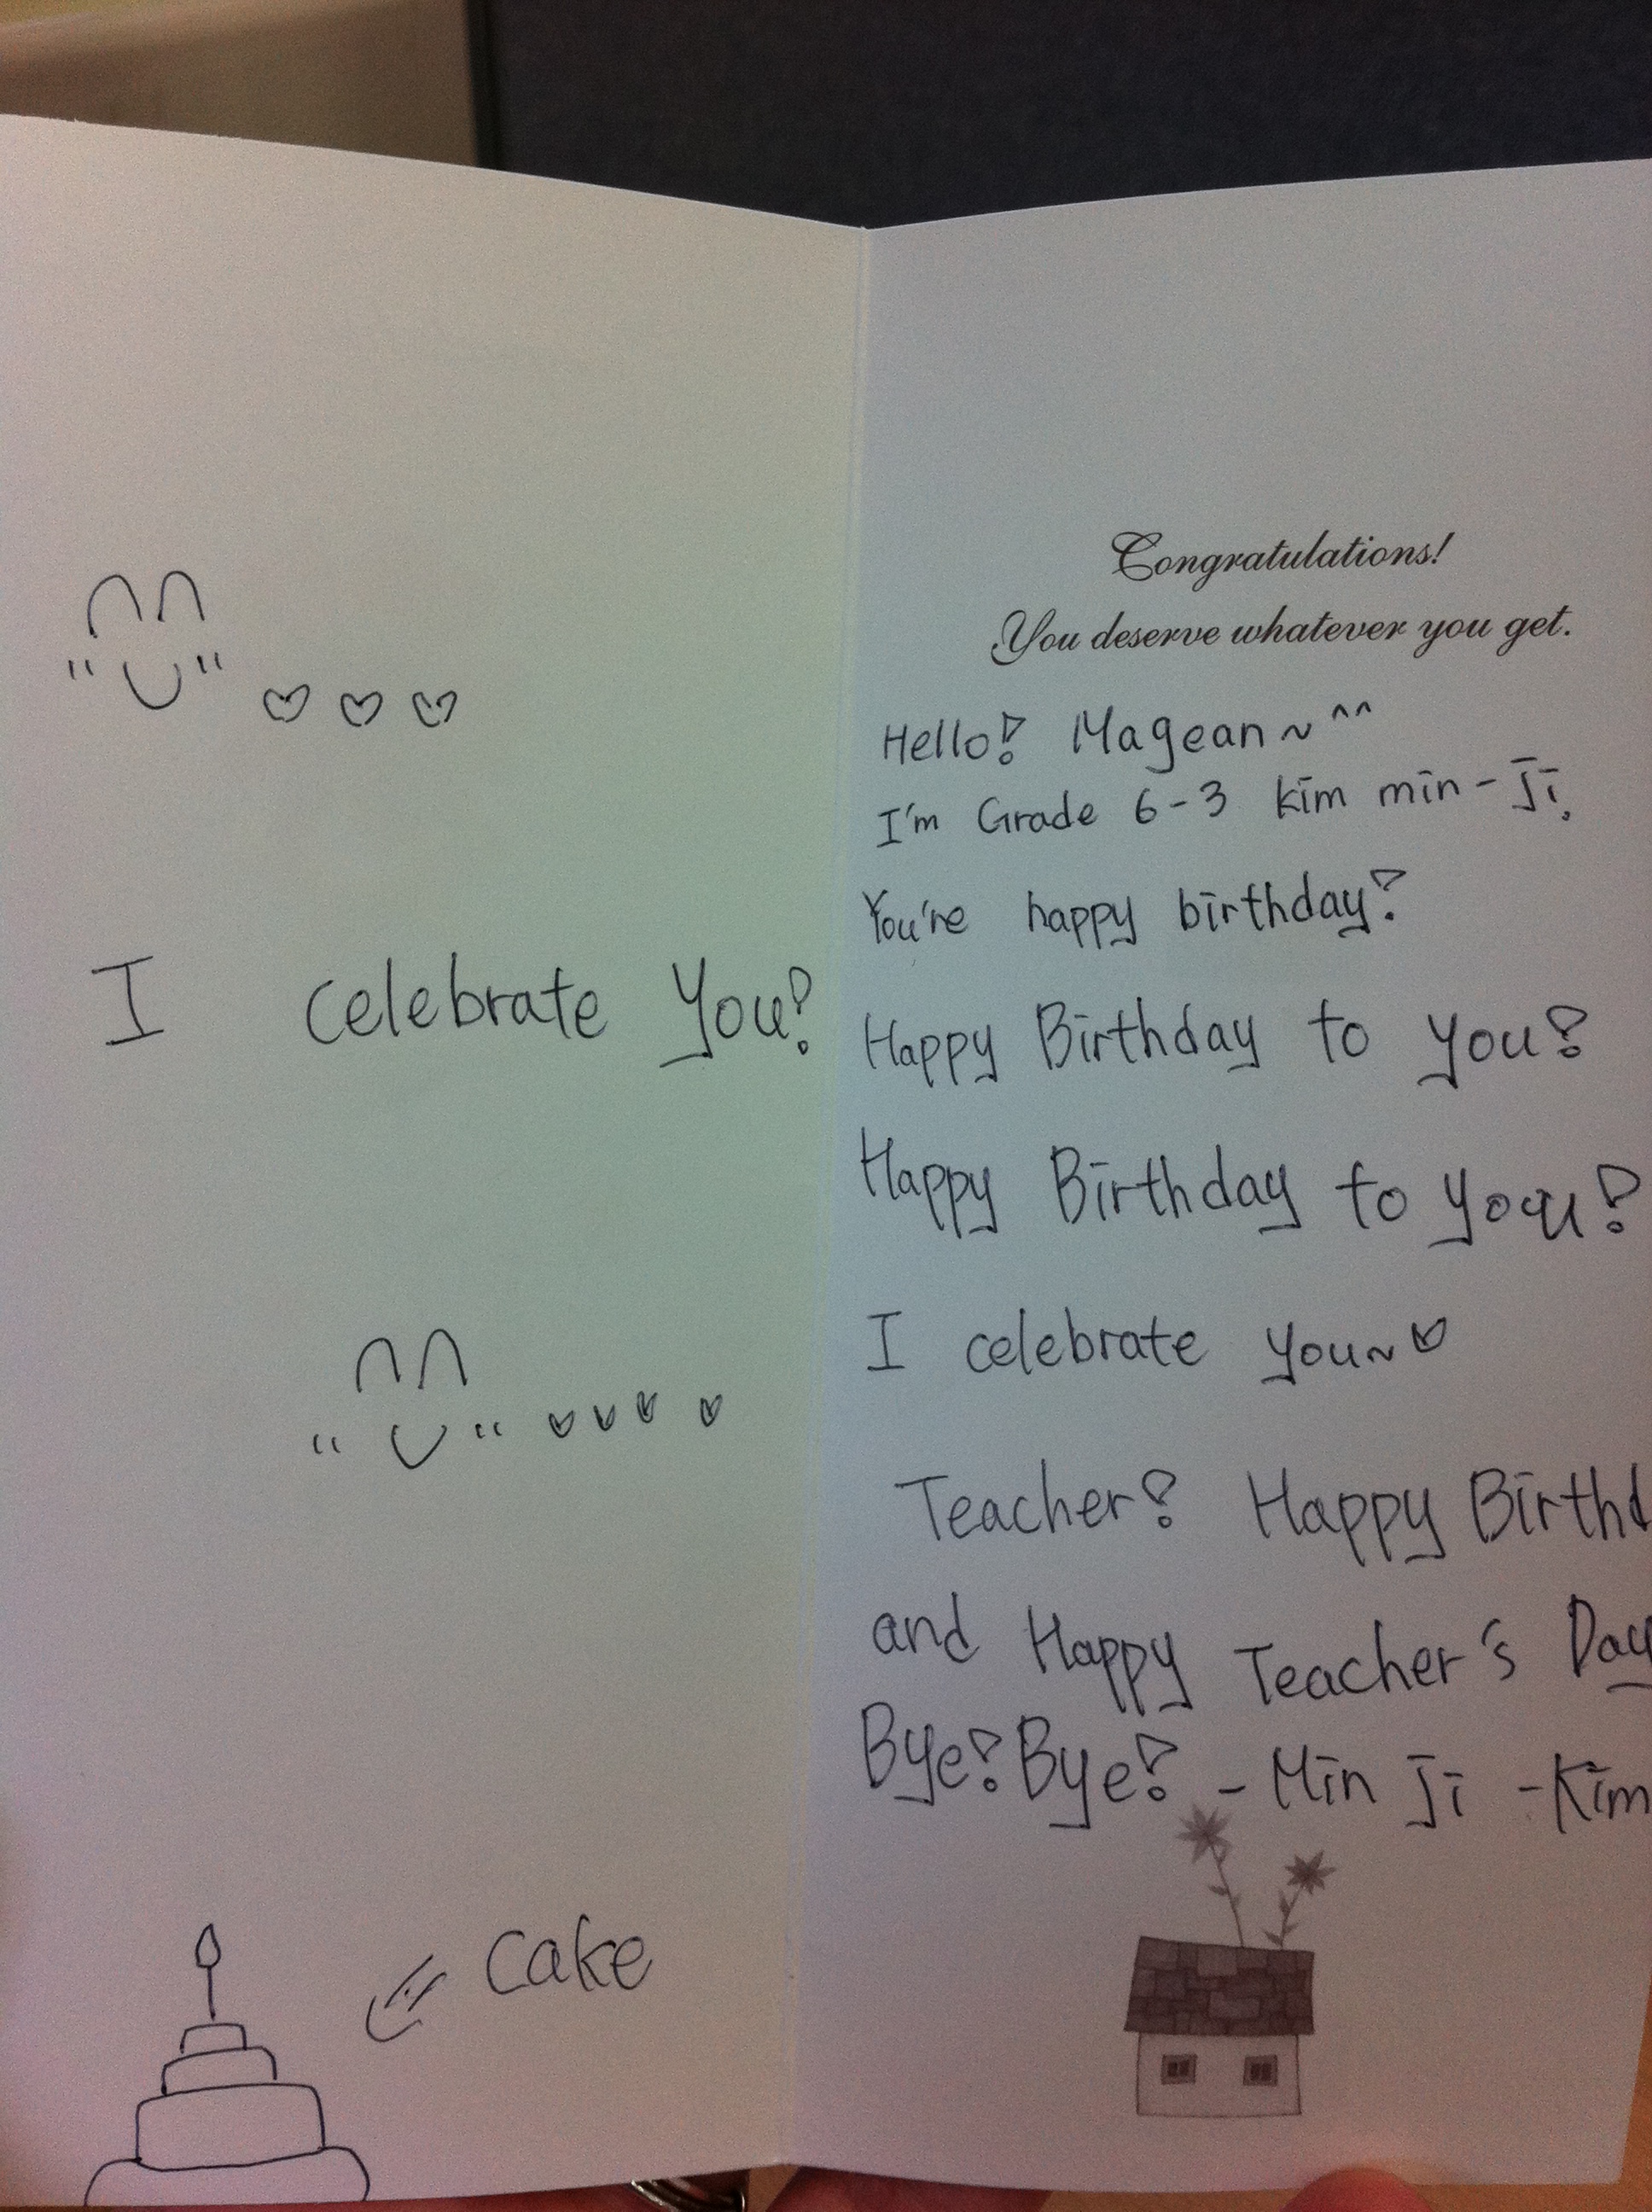 I celebrate You!
cake
Congratulations!
You deserve whatever you get.
Hello! Magean~^^
I'm Grade 6-3 kim min-ji.
You're happy birthday!
Happy Birthday to you!
Happy Birthday to you!
I celebrate you~♡
Teacher! Happy Birthd
and Happy Teacher's Day
Bye! Bye! - Min ji -Kim